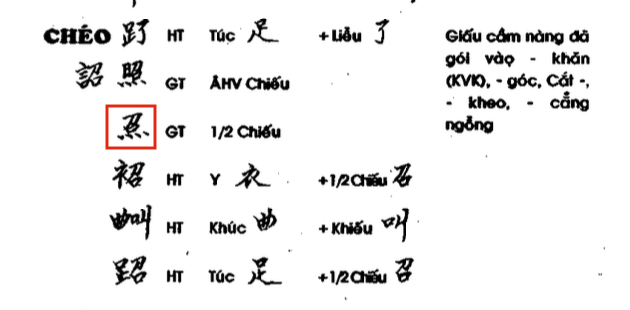 CHÉO HT Túc 足 +Liễu 了
詔 照 GT ÂHV Chiếu
GT 1/2 Chiếu
袑 HT Y 衣 +1/2 Chiếu 召
HT Khúc 曲 +Khiếu 叫
HT Túc 足 +1/2 Chiếu 召
Giấu cẩm nàng đã
gói vào - khăn
(KVK), - góc, Cắt -,
- kheo, - cẳng
ngỗng